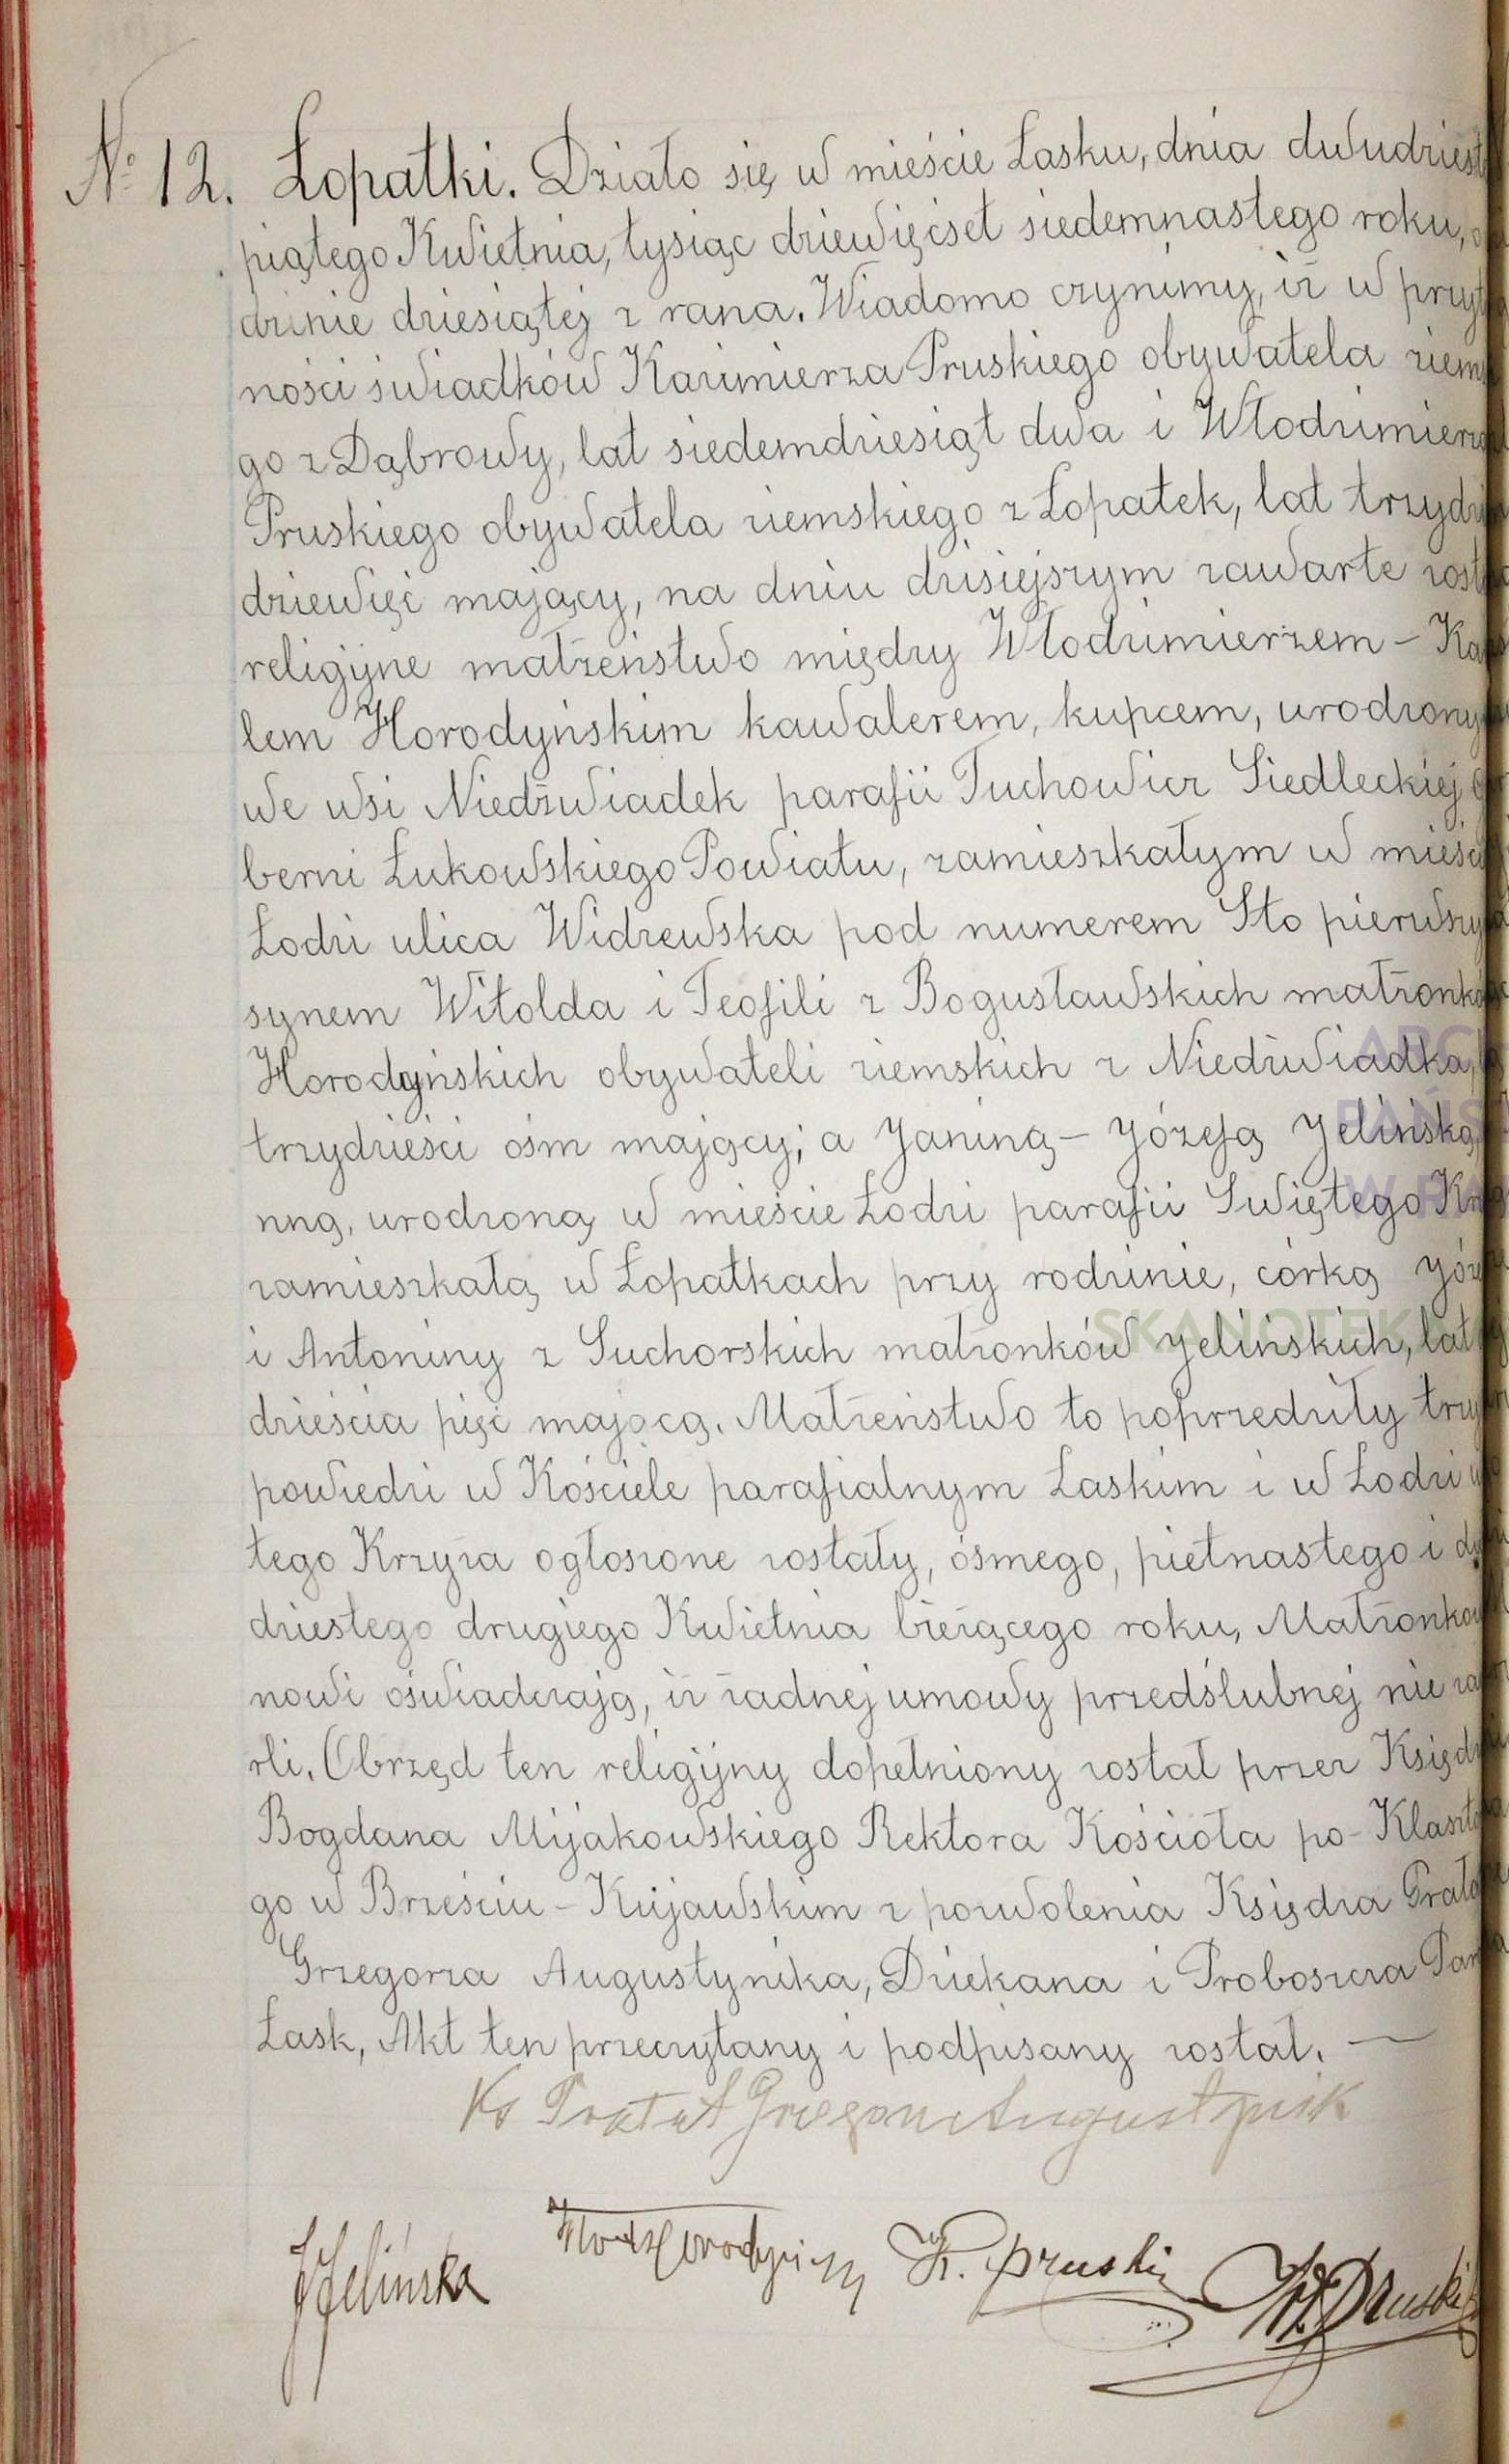 № 12. Łopatki. Działo się w mieście Łasku, dnia dwudziest
piątego Kwietnia, tysiąc dziewięćset siedemnastego roku,
dzinie dziesiątej z rana. Wiadomo czynimy, iż w przyt
ności świadków Kazimierza Pruskiego obywatela ziems
go z Dąbrowy, lat siedemdziesiąt dwa i Włodzimierza
Pruskiego obywatela ziemskiego z Łopatek, lat trzydzi
dziewięć mający, na dniu dzisiejszym zawarte zosta
religijne małżeństwo między Włodzimierzem – Ka
lem Horodyńskim kawalerem, kupcem, urodzony
we wsi Niedźwiadek parafii Tuchowicz Siedleckiej
berni Łukowskiego Powiatu, zamieszkałym w mieści
Łodzi ulica Widzewska pod numerem Sto pierwszy
synem Witolda i Teofili z Bogusławskich małżonków
Horodyńskich obywateli ziemskich z Niedźwiadka,
trzydzieści ośm mający; a Janiną – Józefą Jelińską,
nną, urodzoną w mieście Łodzi parafii Świętego Krz
zamieszkałą w Łopatkach przy rodzinie, córką Józe
i Antoniny z Suchorskich małżonków Jelińskich, lat
dzieścia pięć mającą. Małżeństwo to poprzedziły trzy
powiedzi w Kościele parafialnym Łaskim i w Łodzi
tego Krzyża ogłoszone zostały, ósmego, piętnastego i d
dziestego drugiego Kwietnia bieżącego roku, Małżonko
nowi oświadczają, iż żadnej umowy przedślubnej nie za
rli. Obrzęd ten religijny dopełniony został przez Księdz
Bogdana Mijakowskiego Rektora Kościoła po-Klaszto
go w Brześciu – Kujawskim z pozwolenia Księdza Prała
Grzegorza Augustynika, Dziekana i Proboszcza Para
Łask, Akt ten przeczytany i podpisany został. —
Ks Prałat Grzegorz Augustynik
JJelińska Włodz Horodyński K. Pruski Wł. Pruski
ARCH
PAŃS
W
SKANOTEK